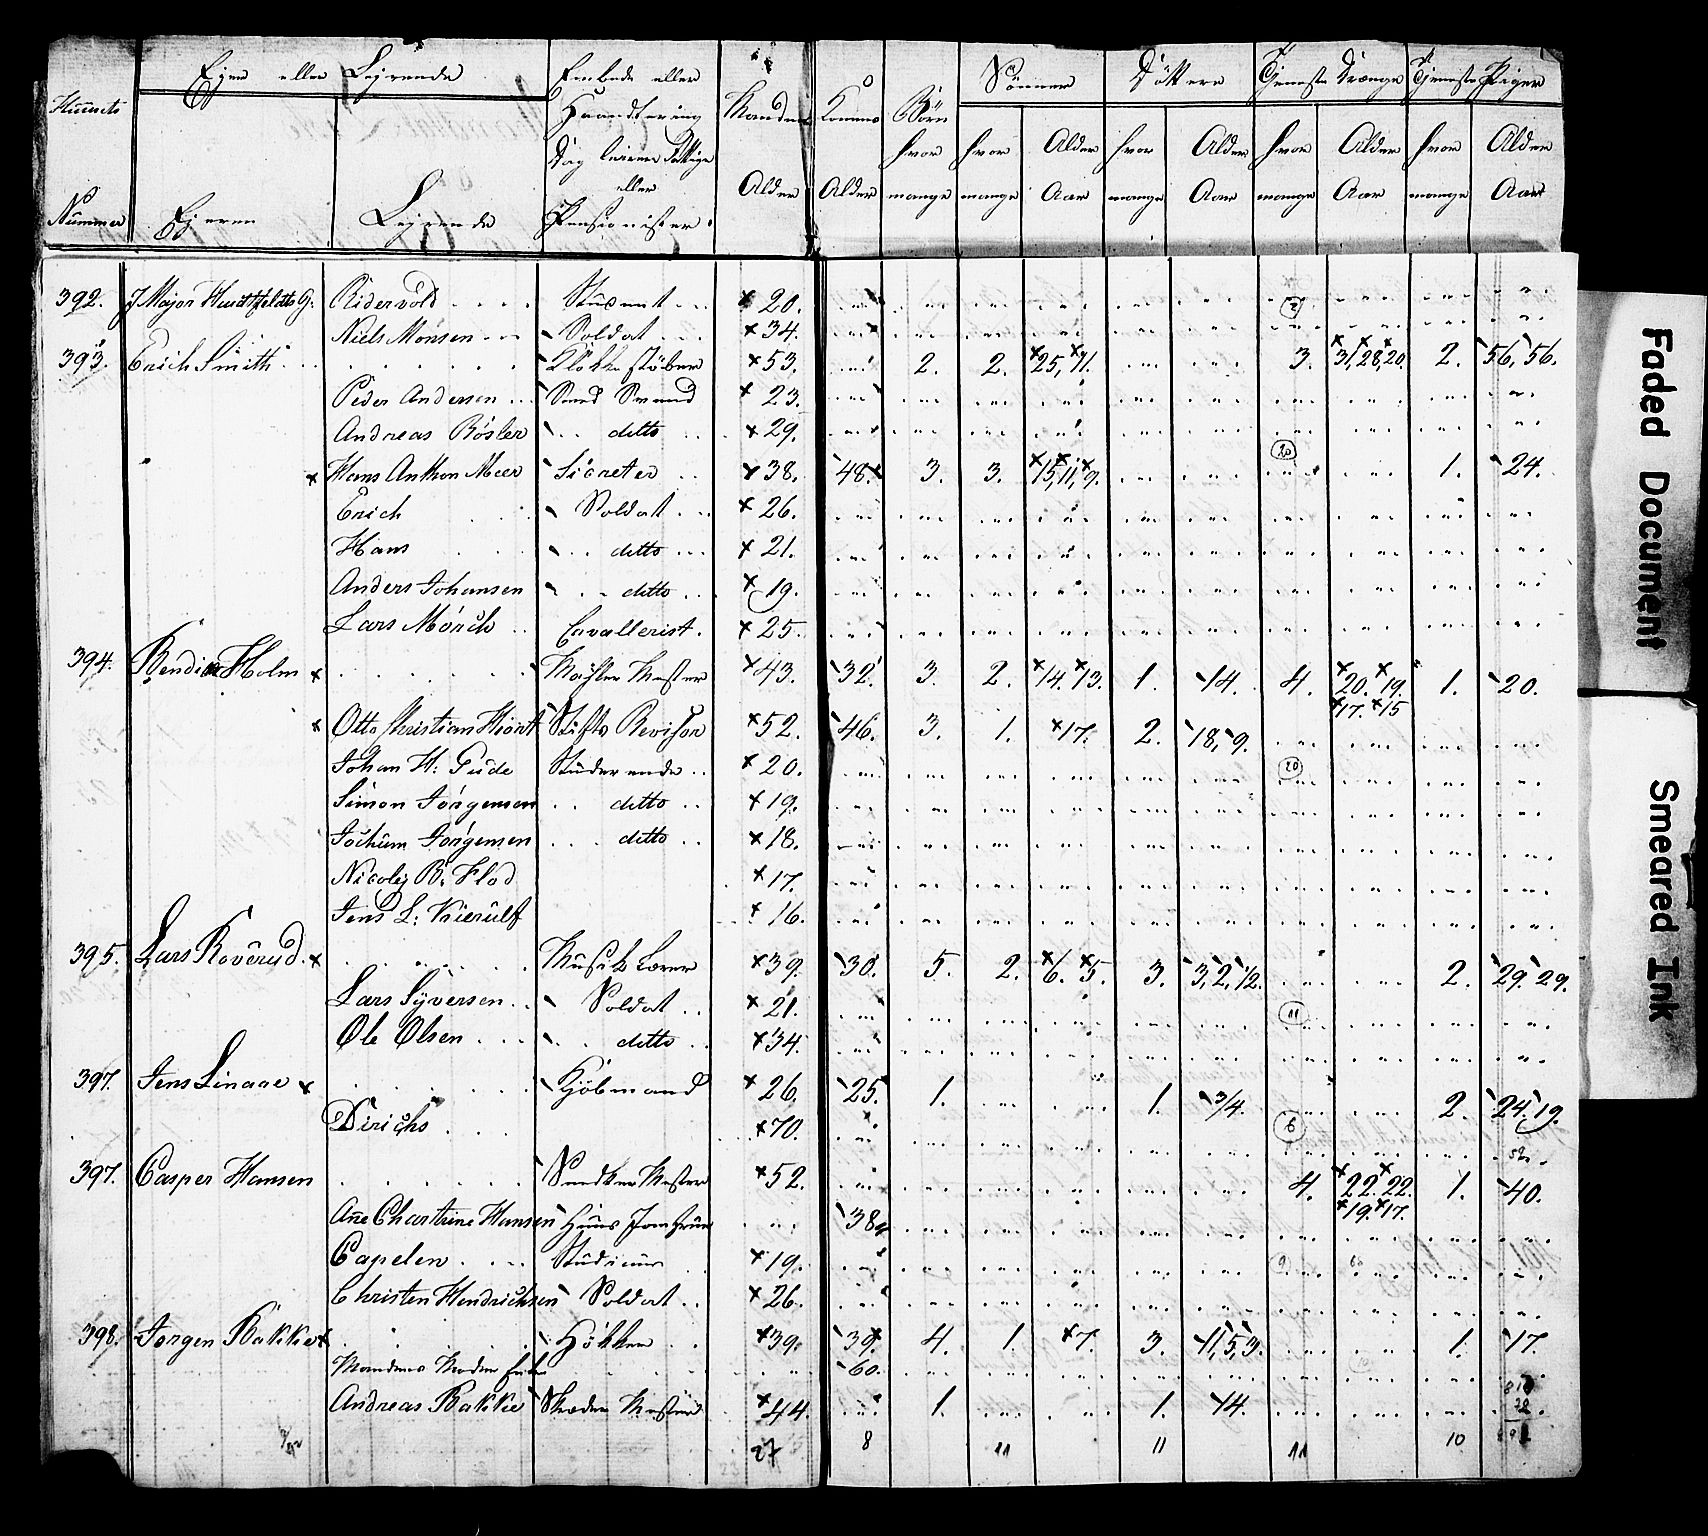 Huusets Nummer
Ejen eller Lejrende
Ejeren
Lejrende
Embede eller
Haandtering
Dag leirere Fattige
eller
Pensionister
Mandens Alder
Konens Alder
Børn hvor mange
Sönner hvor mange Alder Aar
Döttere hvor mange Alder Aar
Tjeneste Drænge hvor mange Alder Aar
Tjeneste Piger hvor mange Alder Aar
392. J Major Huidtfeldts G: Ridervold Student 20.
Niels Monsen Soldat 34.
393. Erich Smith Klokke støber 53. 2. 2. 25, 21. 3. 31, 28, 20. 2. 56, 56.
Peder Andersen Smed Svend 23.
Andreas Rösler ditto 29.
Hans Anthon Meer Sicreter 38. 48. 3. 3. 15, 11, 9. 1. 24.
Erich Soldat 26.
Hans ditto 21.
Anders Johansen ditto 19.
Lars Mörch Cavallerist 25.
394. Holm Mahler Mester 43. 32. 3. 2. 14. 13. 1. 14. 4. 20. 19. 1. 20.
17. 15
Otto Christian Hiorth Stifts Revisor 52. 46. 3. 1. 17. 2. 18, 9.
Johan H: Gude Studerende 20.
Simon Jörgensen ditto 19.
Jochum Jörgensen ditto 18.
Nicolej B: Flod 17.
Jens L: Kierulf 16.
395. Lars Roverud Musik Lærer 39. 30. 5. 2. 6. 5. 3. 3, 2, 1/2. 2. 29. 29.
Lars Syversen Soldat 21.
Ole Olsen ditto 34.
397. Jens Linaae Kjöbmand 26. 25. 1. 1. 3/4. 2. 24. 19.
Dirichs 70.
397. Casper Hansen Snedker Mester 52. 4. 22. 22. 1. 40.
19. 17.
Ane Chartrine Hansen Huus Jomfrue 38
Capelen Studious 19.
Christen Hendrichsen Soldat 26.
398. Jorgen Bakke Høkker 39. 39. 4. 1. 7. 3. 11, 5, 3. 1. 17.
Mandens Moder Enke 60.
Andreas Bakke Skræder Mester 44. 1. 1. 14.
27 8 11 11 11 10
Faded Document
Smeared Ink